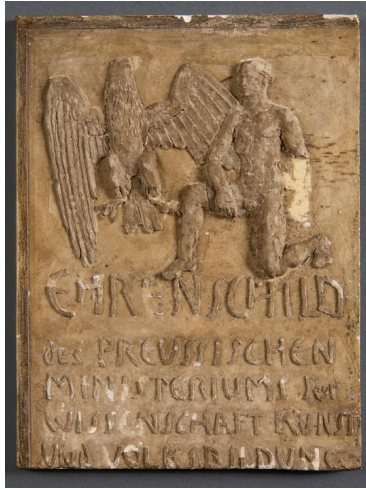 EHRENSCHILD
des PREUSSISCHEN
MINISTERIUMS für
WISSENSCHAFT KUNST
UND VOLKSBILDUNG